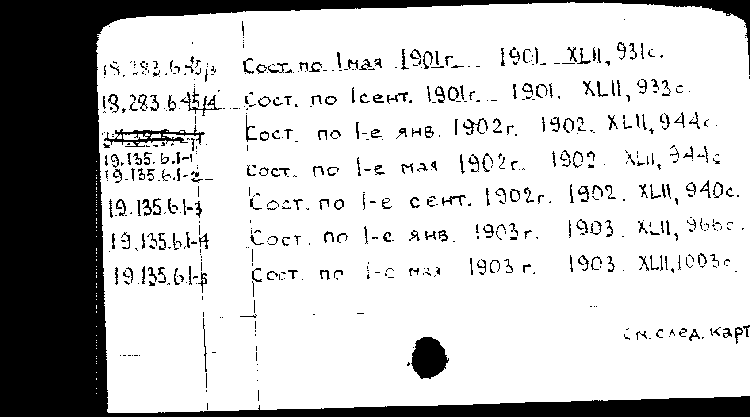 18.283.6.45/3 Сост. по 1 мая 1901г. 1901. XLII, 931с.
18.283.6.45/4 Сост. по 1 сент. 1901г. 1901. XLII, 933с.
Сост. по 1-е янв. 1902г. 1902. XLII, 944с.
19.135.6.1-1
19.135.6.1-2 Сост. по 1-е мая 1902г. 1902. XLII, 944с
19.135.6.1-3 Сост. по 1-е сент. 1902г. 1902. XLII, 940с.
19.135.6.1-4 Сост. по 1-е янв. 1903г. 1903. XLII, 966с.
19.135.6.1-5 Сост. по 1-е мая 1903г. 1903. XLII, 1003с.
см. след. карт